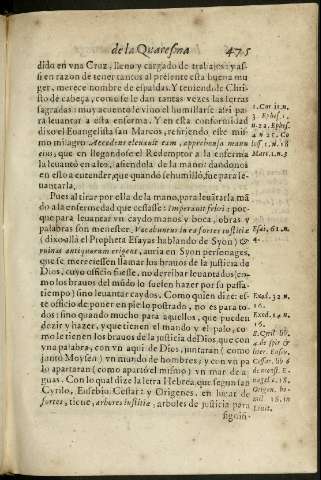 de la Quaresma 475
dido en vna Cruz, lleno y cargado de trabajos: y assi
si en razon de tener tantos al presente esta buena mu
ger, merece nombre de espaldas. Y teniendo de Chris
to de cabeça, como se le dan tantas vezes las letras
sagradas: muy acuento le vino el humillarse assi pa
ra leuantar a esta enferma. Y en esta conformidad
dixo el Euangelista san Marcos, refiriendo este mis
mo milagro Accedens eleuauit eam, apprehensa manu
eius, que en llegandose el Redemptor a la enferma
la leuantò en alto, asiendola de la mano: dandonos
en esto a entender, que quando se humillò, fue para le-
uantarla.
Pues al tirar por ella de la mano, para leuãtarla mã
dò a la enfermedad que cessasse: Imperauit febri: por-
que para leuantar vn caydo manos y boca, obras y
palabras son menester. Vocabuntur in ea fortes iustitiæ
(dixo allà el Propheta Esayas hablando de Syon) &
ruinas antiquorum erigent, auria en Syon personages,
que se mereciessen llamar los brauos de la justicia de
Dios, cuyo officio fuesse, no derribar leuantados (co-
mo los brauos del mũdo lo suelen hazer por su passa-
tiempo) sino leuantar caydos. Como quien dize: es-
te officio de poner en pie lo postrado, no es para to-
dos: sino quando mucho para aquellos, que pueden
dezir y hazer, y que tienen el mando y el palo, co-
mo le tienen los brauos de la justicia de Dios, que con
vna palabra, con vn aqui de Dios, juntaran (como
juntò Moysen) vn mundo de hombres: y con vn pa
lo apartaran (como apartò el mismo) vn mar de a-
guas. Con lo qual dize la letra Hebrea, que segun san
Cyrilo, Eusebio Cesar: 2 y Origenes, en lugar de
fortes, tiene, arbores iustitiæ, arboles de justicia para
signifi-
1. Cor. 11. n.
3. Ephes. 1.
n. 22. Ephes.
4. n. 15. Co
los. 1. n. 18
Marc. 1. n. 3
Esai. 61. n.
4.
Exod. 32. n.
26.
Exod. 14. n.
16.
S. Cyril. lib.